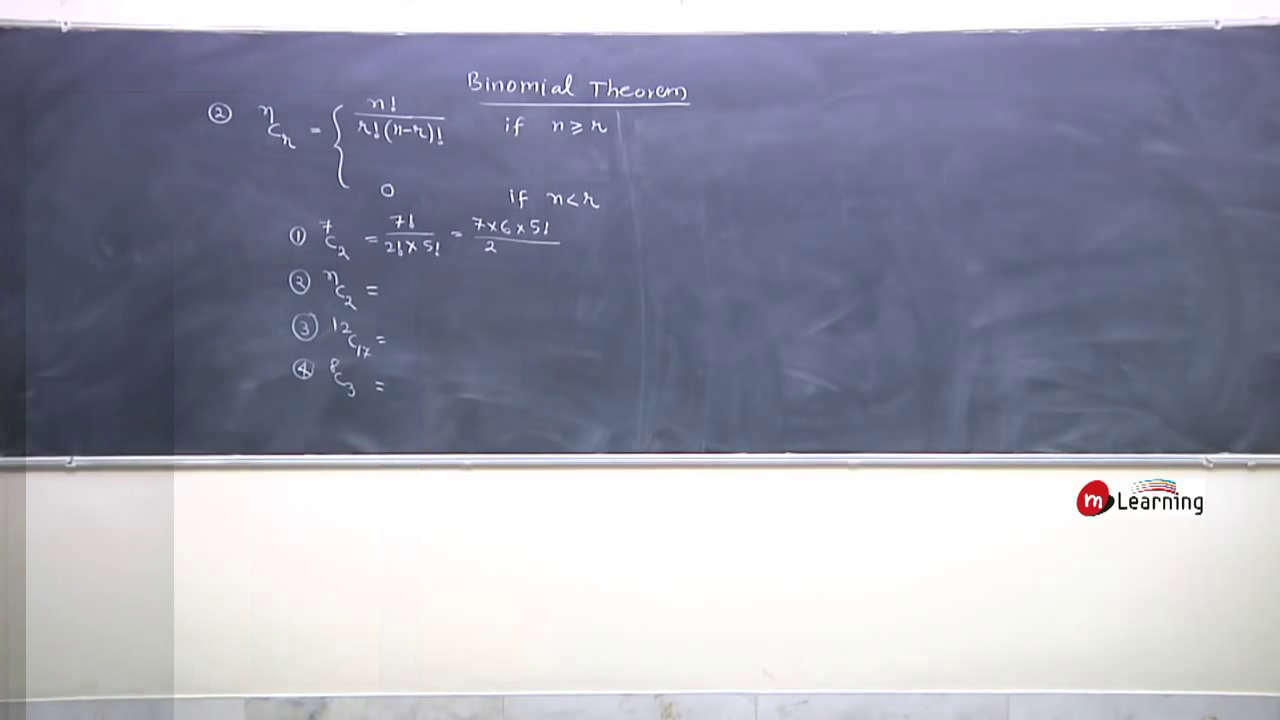 Binomial Theorem
② ⁿCᵣ = { n! / r!(n-r)! if n ≥ r
0 if n < r
① ⁷C₂ = 7! / 2! × 5! = 7 × 6 × 5! / 2
② ⁿC₂ =
③ ¹²C₁₇ =
④ ⁸C₃ =
m Learning